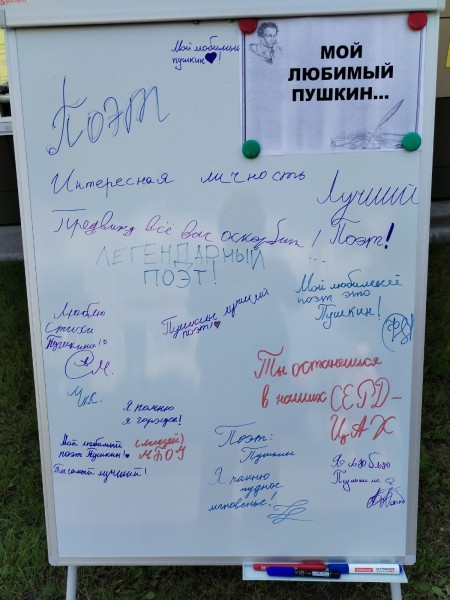 Мой любимый
пушкин
МОЙ
ЛЮБИМЫЙ
ПУШКИН...
Поэт
Интересная личность
Лучший
Поэт!
всё вас оскорбит!
ЛЕГЕНДАРНЫЙ
ПОЭТ!
Мой любимый
поэт это
Пушкин!
Люблю
стихи
Пушкина!
Пушкин лучший
поэт!
Ты останешься
в наших СЕРД-
ЦАХ
Я помню
я горжусь!
Мой любимый
поэт Пушкин!
Ты самый лучший!
(лицей)
Поэт:
Пушкин
Я помню
чудное
мгновенье!
Я люблю